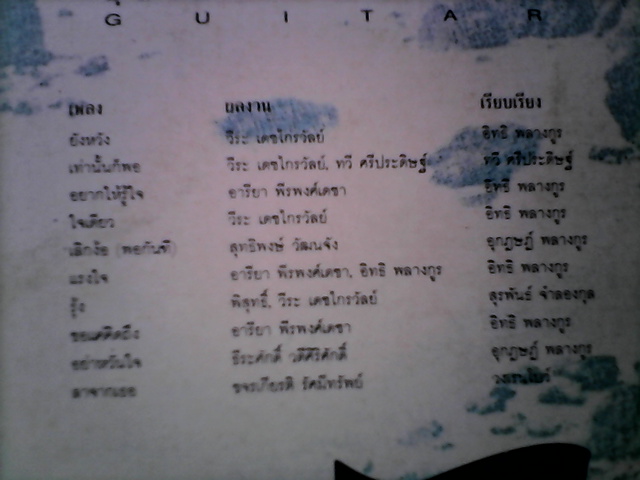 G U I T A R
เพลง ผลงาน เรียบเรียง
ยังหวัง วีระ เดชไกรวัลย์ อิทธิ พลางกูร
เท่านั้นก็พอ วีระ เดชไกรวัลย์, ทวี ศรีประดิษฐ์ ทวี ศรีประดิษฐ์
อยากให้รู้ใจ อาริยา พีรพงศ์เดชา อิทธิ พลางกูร
ใจเดียว วีระ เดชไกรวัลย์ อิทธิ พลางกูร
เลิกง้อ (พอกันที) สุทธิพงษ์ วัฒนจัง อุกฤษฎ์ พลางกูร
แรงใจ อาริยา พีรพงศ์เดชา, อิทธิ พลางกูร อิทธิ พลางกูร
รุ้ง พิสุทธิ์, วีระ เดชไกรวัลย์ สุรพันธ์ จำลองกุล
ขอแค่คิดถึง อาริยา พีรพงศ์เดชา อิทธิ พลางกูร
อย่าหวั่นใจ ธีระศักดิ์ วดีศิริศักดิ์ อุกฤษฎ์ พลางกูร
ลาจากเธอ ขจรเกียรติ รัศมีทรัพย์